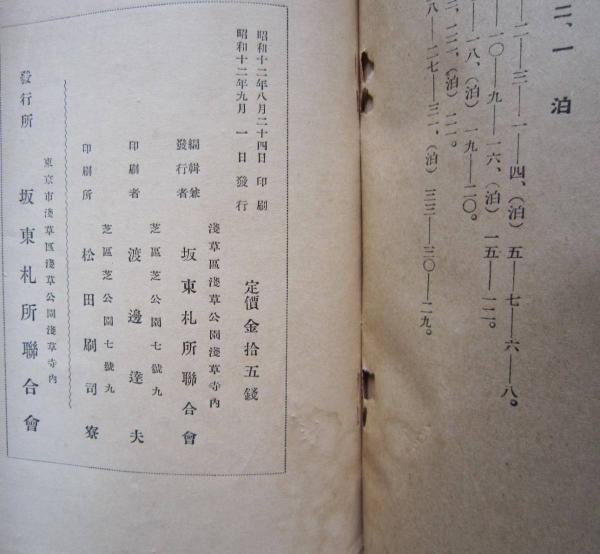 一泊
二―三―一―四、(泊) 五―七―六―八。
一〇―九―一六、(泊) 一五―一二。
一八、(泊) 一九―二〇。
(泊)
八―二七―三一、(泊) 三三―三〇―二九。
昭和十二年八月二十四日 印刷
昭和十二年九月 一日 發行
定價金拾五錢
淺草區淺草公園淺草寺內
編輯兼發行者 坂東札所聯合會
芝區芝公園七號九
印刷者 渡邊達夫
芝區芝公園七號九
印刷所 松田刷司寮
東京市淺草區淺草公園淺草寺內
發行所 坂東札所聯合會